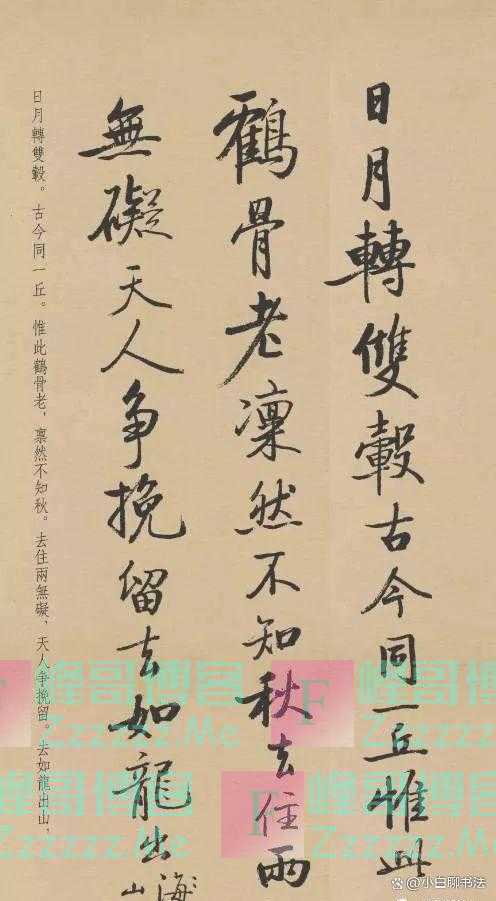 日月轉雙轂古今同一丘惟此
鶴骨老凜然不知秋去住兩
無礙天人争挽留去如龍出
山
海
日月轉雙轂。古今同一丘。惟此鶴骨老，凜然不知秋。去住兩無礙，天人爭挽留。去如龍出山，
峰哥博客
Zzzzzz.Me
F
峰哥博客
Zzzzzz.Me
F
峰哥博客
Zzzzzz.Me
峰哥博客
Zzzzzz.Me
F
峰哥博客
Zzzzzz.Me
@小白聊书法